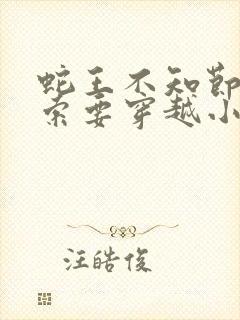 蛇王不知節
索要穿越小
汪皓俊